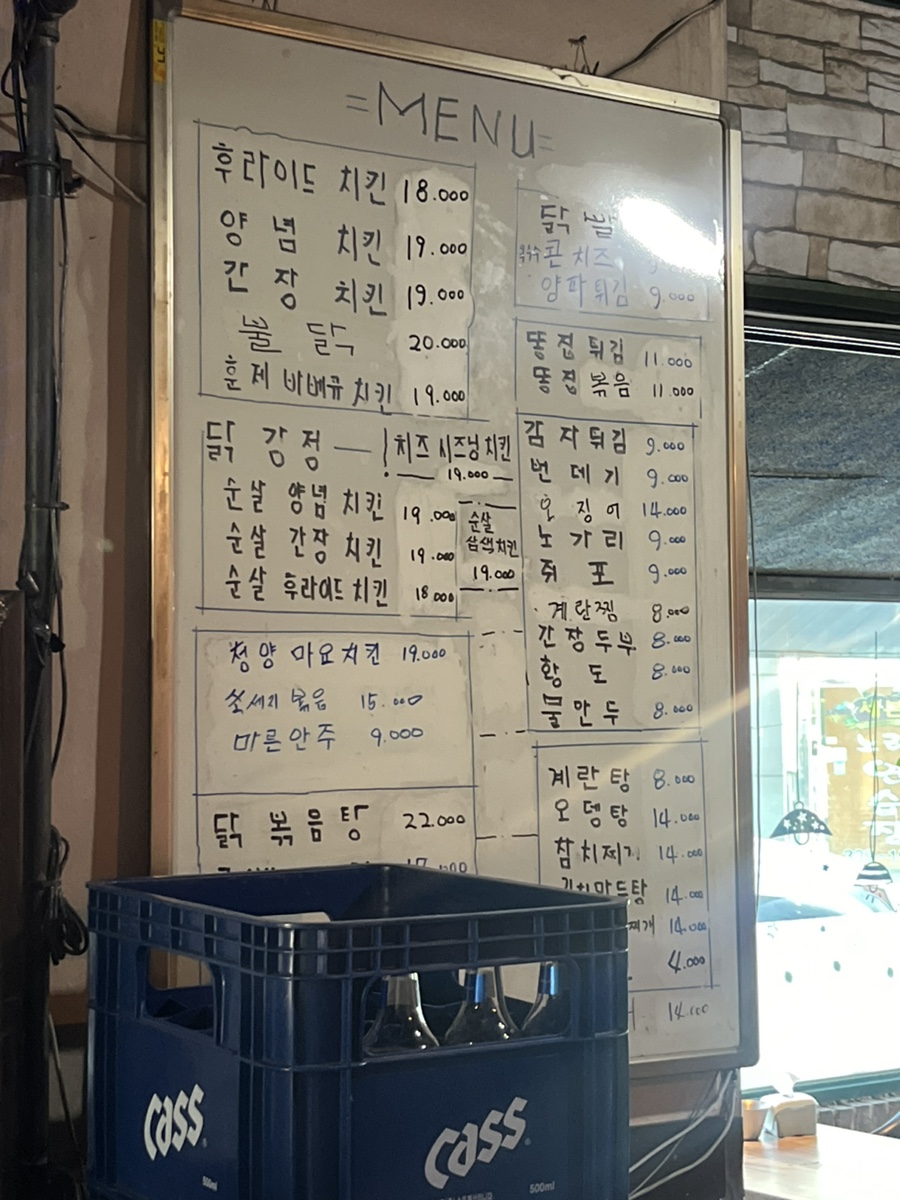 =MENU=
후라이드 치킨 18.000
양념 치킨 19.000
간장 치킨 19.000
불닭 20.000
훈제 바베큐 치킨 19.000
닭강정
치즈 시즈닝 치킨
19.000
순살 양념 치킨 19.000
순살 간장 치킨 19.000
순살 후라이드 치킨 18.000
순살
삼색치킨
19.000
청양 마요치킨 19.000
쏘세지 볶음 15.000
마른안주 9.000
닭볶음탕 22.000
닭발
옥수수 콘치즈
양파튀김 9.000
똥집 튀김 11.000
똥집 볶음 11.000
감자튀김 9.000
번데기 9.000
오징어 14.000
노가리 9.000
쥐포 9.000
계란찜 8.000
간장두부 8.000
황도 8.000
물만두 8.000
계란탕 8.000
오뎅탕 14.000
참치찌개 14.000
김치만두탕 14.000
찌개 14.000
4.000
14.000
Cass
500ml
Cass
500ml